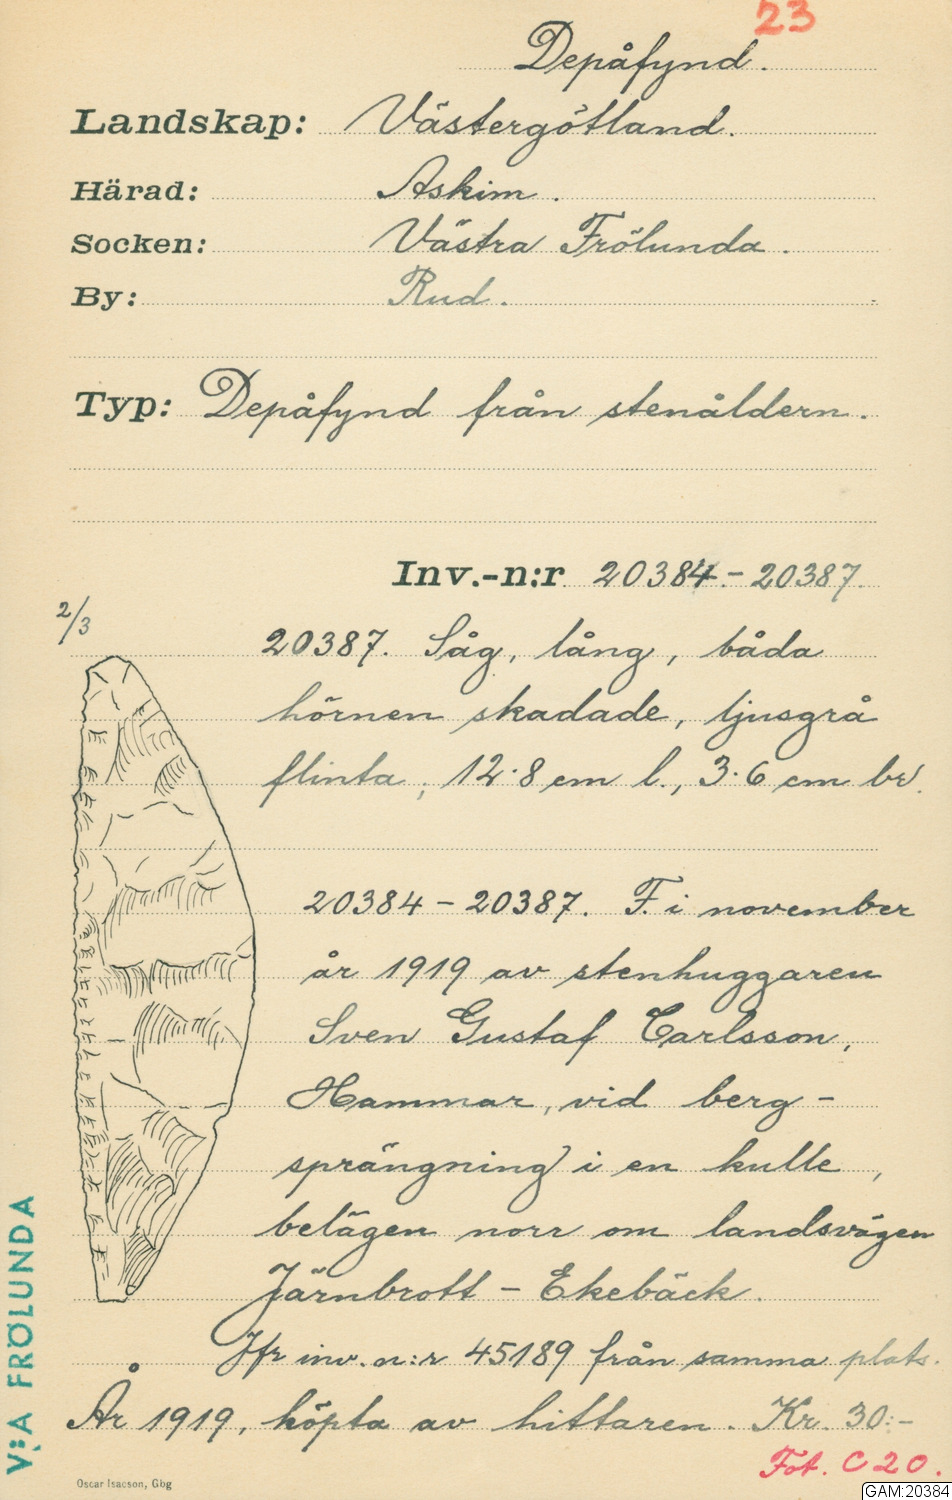 23
Depåfynd.
Landskap: Västergötland.
Härad: Askim.
Socken: Västra Frölunda.
By: Rud.
Typ: Depåfynd från stenåldern.
Inv.-n:r 20384.-20387.
2/3
20387. Såg, lång, båda
hörnen skadade, ljusgrå
flinta; 12.8 cm l., 3.6 cm br.
20384-20387. F. i november
år 1919 av stenhuggaren
Sven Gustaf Carlsson,
Hammar, vid berg-
sprängning i en kulle,
belägen norr om landsvägen
Järnbrott - Ekebäck.
Jfr inv. n:r 45189 från samma plats.
År 1919, köpta av hittaren. Kr. 30:-
Fot. C 20.
V:A FRÖLUNDA
Oscar Isacson, Gbg
GAM:20384